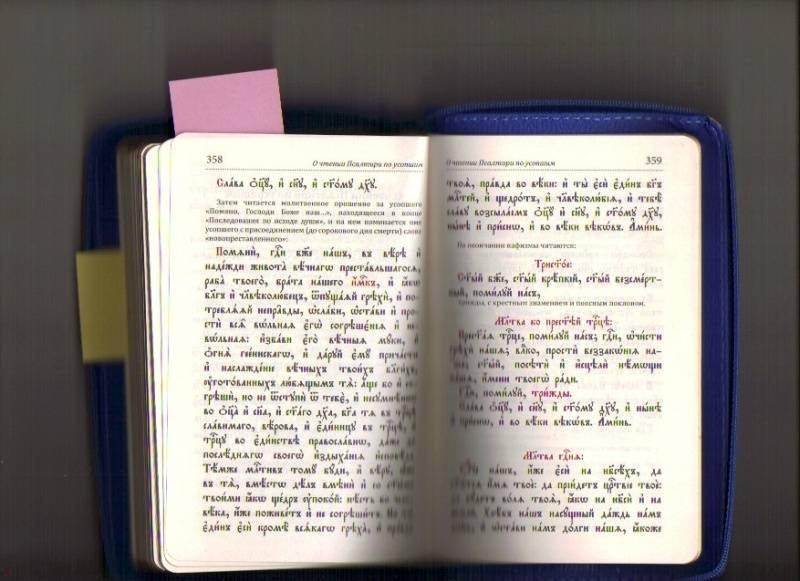 358
О чтении Псалтири по усопшим
Сла́ва ѻ҆ц҃ꙋ̀, и҆ сн҃ꙋ, и҆ ст҃о́мꙋ дх҃ꙋ.
Затем читается молитвенное прошение за усопшего
«Помяни, Господи Боже наш...», находящееся в конце
«Последования по исходе души», и на нем поминается имя
усопшего с присоединением (до сорокового дня смерти) слова
«новопреставленного»:
Помѧнѝ, гдⷭ҇и бж҃е на́шъ, въ вѣ́рѣ и҆
наде́жди живота̀ вѣ́чнагѡ преста́вльшагосѧ,
раба̀ твоего̀, бра́та нашего и҆́мⷬ҇къ, и҆ ꙗ҆́кѡ
бл҃гъ и҆ чл҃вѣколю́бецъ, ѿпꙋща́ѧй грѣхѝ, и҆ по-
треблѧ́ѧй непра́вды, ѡ҆сла́би, ѡ҆ста́ви и҆ про-
стѝ всѧ̑ вѡ́льнаѧ є҆гѡ̀ согрѣшє́нїѧ и҆ не-
вѡ́льнаѧ: и҆зба́ви є҆го̀ вѣ́чныѧ мꙋ́ки, и҆
ѻ҆гнѧ̀ гее́нскагѡ, и҆ да́рꙋй є҆мꙋ̀ прича́стїе
и҆ наслажде́нїе вѣ́чныхъ твои́хъ бл҃ги́хъ,
ᲂу҆гото́ванныхъ лю́бѧщымъ тѧ̀: а҆́ще бо и҆ со-
грѣшѝ, но не ѿстꙋпѝ ѿ тебє̀, и҆ несꙋмнѣ́ннѡ
во ѻ҆ц҃а̀ и҆ сн҃а, и҆ ст҃а́го дх҃а, бг҃а тѧ̀ въ трⷪ҇цѣ
сла́вимаго, вѣ́рова, и҆ є҆ди́ницꙋ въ трⷪ҇цѣ, и҆
трⷪ҇цꙋ во є҆ди́нствѣ правосла́внѡ, да́же до
послѣ́днѧгѡ своегѡ̀ и҆здыха́нїѧ и҆сповѣ́да.
Тѣ́мже млⷭ҇тивъ томꙋ̀ бꙋ́ди, и҆ вѣ́рꙋ, ꙗ҆́же
въ тѧ̀, вмѣ́стѡ дѣ́лъ вмѣнѝ и҆ со ст҃ы́ми
твои́ми ꙗ҆́кѡ щє́дръ ᲂу҆поко́й: нѣ́сть бо чело-
вѣ́ка, и҆́же поживе́тъ и҆ не согрѣши́тъ. Но ты̀
є҆ди́нъ є҆сѝ кромѣ̀ всѧ́кагѡ грѣха̀, и҆ пра́вда
О чтении Псалтири по усопшим
359
твоѧ̀, пра́вда во вѣ́ки: и҆ ты̀ є҆сѝ є҆ди́нъ бг҃ъ
млⷭ҇тей, и҆ щедро́тъ, и҆ чл҃вѣколю́бїѧ, и҆ тебѣ̀
сла́вꙋ возсыла́емъ ѻ҆ц҃ꙋ̀ и҆ сн҃ꙋ, и҆ ст҃о́мꙋ дх҃ꙋ,
ны́нѣ и҆ при́снѡ, и҆ во вѣ́ки вѣкѡ́въ. А҆ми́нь.
По окончании кафизмы читаются:
Трист҃о́е:
Ст҃ы́й бж҃е, ст҃ы́й крѣ́пкїй, ст҃ы́й безсме́рт-
ный, поми́лꙋй на́съ,
трижды, с крестным знамением и поясным поклоном.
Мл҃тва ко прест҃ѣ́й трⷪ҇цѣ:
Прест҃а́ѧ трⷪ҇це, поми́лꙋй на́съ; гдⷭ҇и, ѡ҆чи́сти
грѣхѝ на́шѧ; влⷣко, простѝ беззакѡ́нїѧ на-
ша; ст҃ы́й, посѣтѝ и҆ и҆сцѣлѝ не́мѡщи
на́шѧ, и҆́мене твоегѡ̀ ра́ди.
Гдⷭ҇и, поми́лꙋй, три́жды.
Сла́ва ѻ҆ц҃ꙋ̀, и҆ сн҃ꙋ, и҆ ст҃о́мꙋ дх҃ꙋ, и҆ ны́нѣ
и҆ при́снѡ, и҆ во вѣ́ки вѣкѡ́въ. А҆ми́нь.
Мл҃тва гдⷭ҇нѧ:
Ѻ҆́ч҃е на́шъ, и҆́же є҆сѝ на нб҃сѣ́хъ, да
ст҃и́тсѧ и҆́мѧ твоѐ: да прїи́детъ црⷭ҇твїе твоѐ:
да бꙋ́детъ во́лѧ твоѧ̀, ꙗ҆́кѡ на нб҃сѝ и҆ на
землѝ. Хлѣ́бъ на́шъ насꙋ́щный да́ждь на́мъ
дне́сь, и҆ ѡ҆ста́ви на́мъ до́лги на́шѧ, ꙗ҆́коже